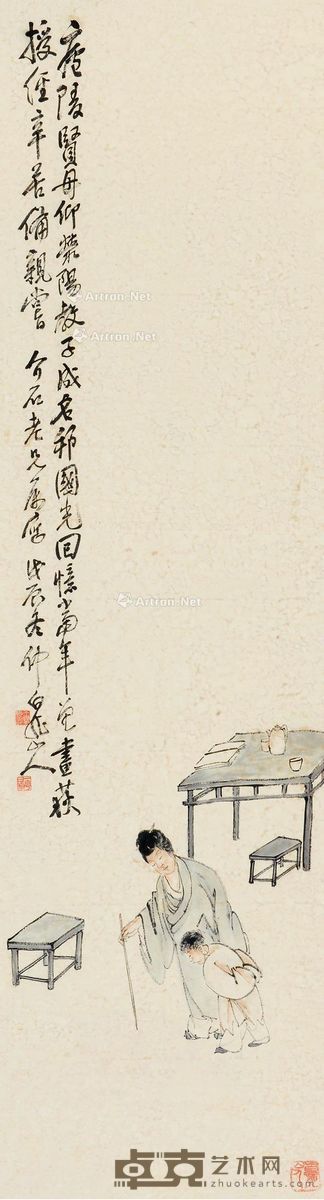 廬陵賢母仰滎陽教子成名邦國光回憶當年曾畫荻
授經辛苦備親嘗 介石老兄屬 戊辰冬仲 白龍山人
Artron.Net
Artron.Net
Artron.Net
卓克艺术网
zhuokearts.com